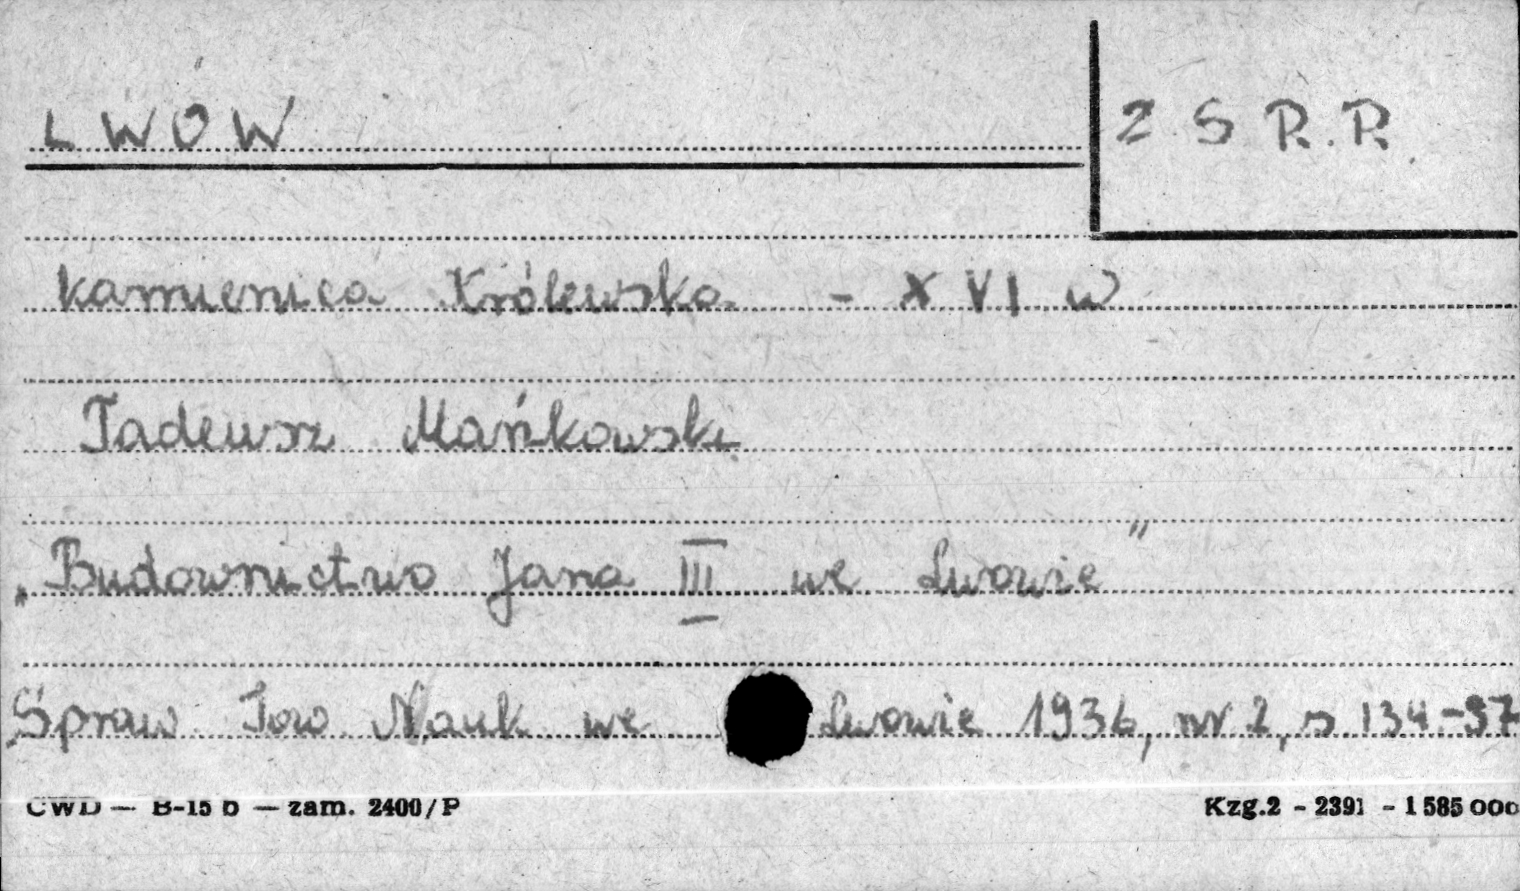 LWÓW
Z S R.R.
kamienica Królewska - XVI w
Tadeusz Mańkowski
„Budownictwo Jana III we Lwowie"
Spraw. Tow Nauk we Lwowie 1936, nr 2, s. 134-37
CWD — B-15 b — zam. 2400/P
Kzg.2 - 2391 - 1 585 000